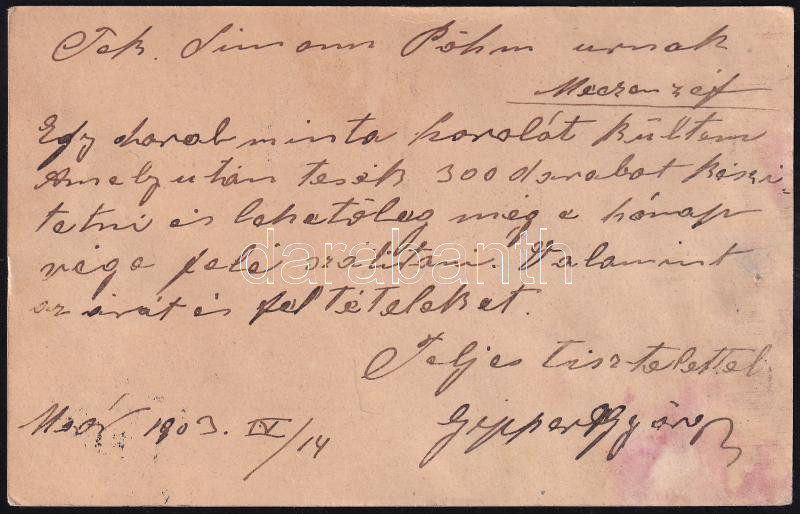 Tek. Simonn Pöhm urnak
Meczenzéf
Egy darab minta korolát küldtem
Amely után tesék 300 darabot készi-
tetni és lehetőleg még e hónap
vége felé szálitani. Valamint
az árát és feltételeket.
Teljes tisztelettel
1903. IV/14 Gipper György
darabanth